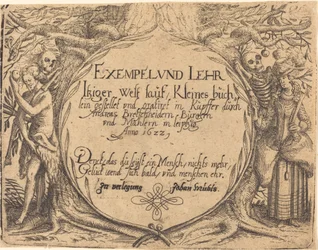 EXEMPEL VND LEHR
Itziger Welt lauf, Kleines büch,
lein gestellet vnd gradirt in Kupffer durch
Andream Bretschneidern, Bürgern
vnd Mahlern in leipzig,
Anno 1622,
Denck das du seist ein Mensch, nichts mehr,
Gelück wend sich bald, vnd menschen ehr.
Zu verlegung Johan